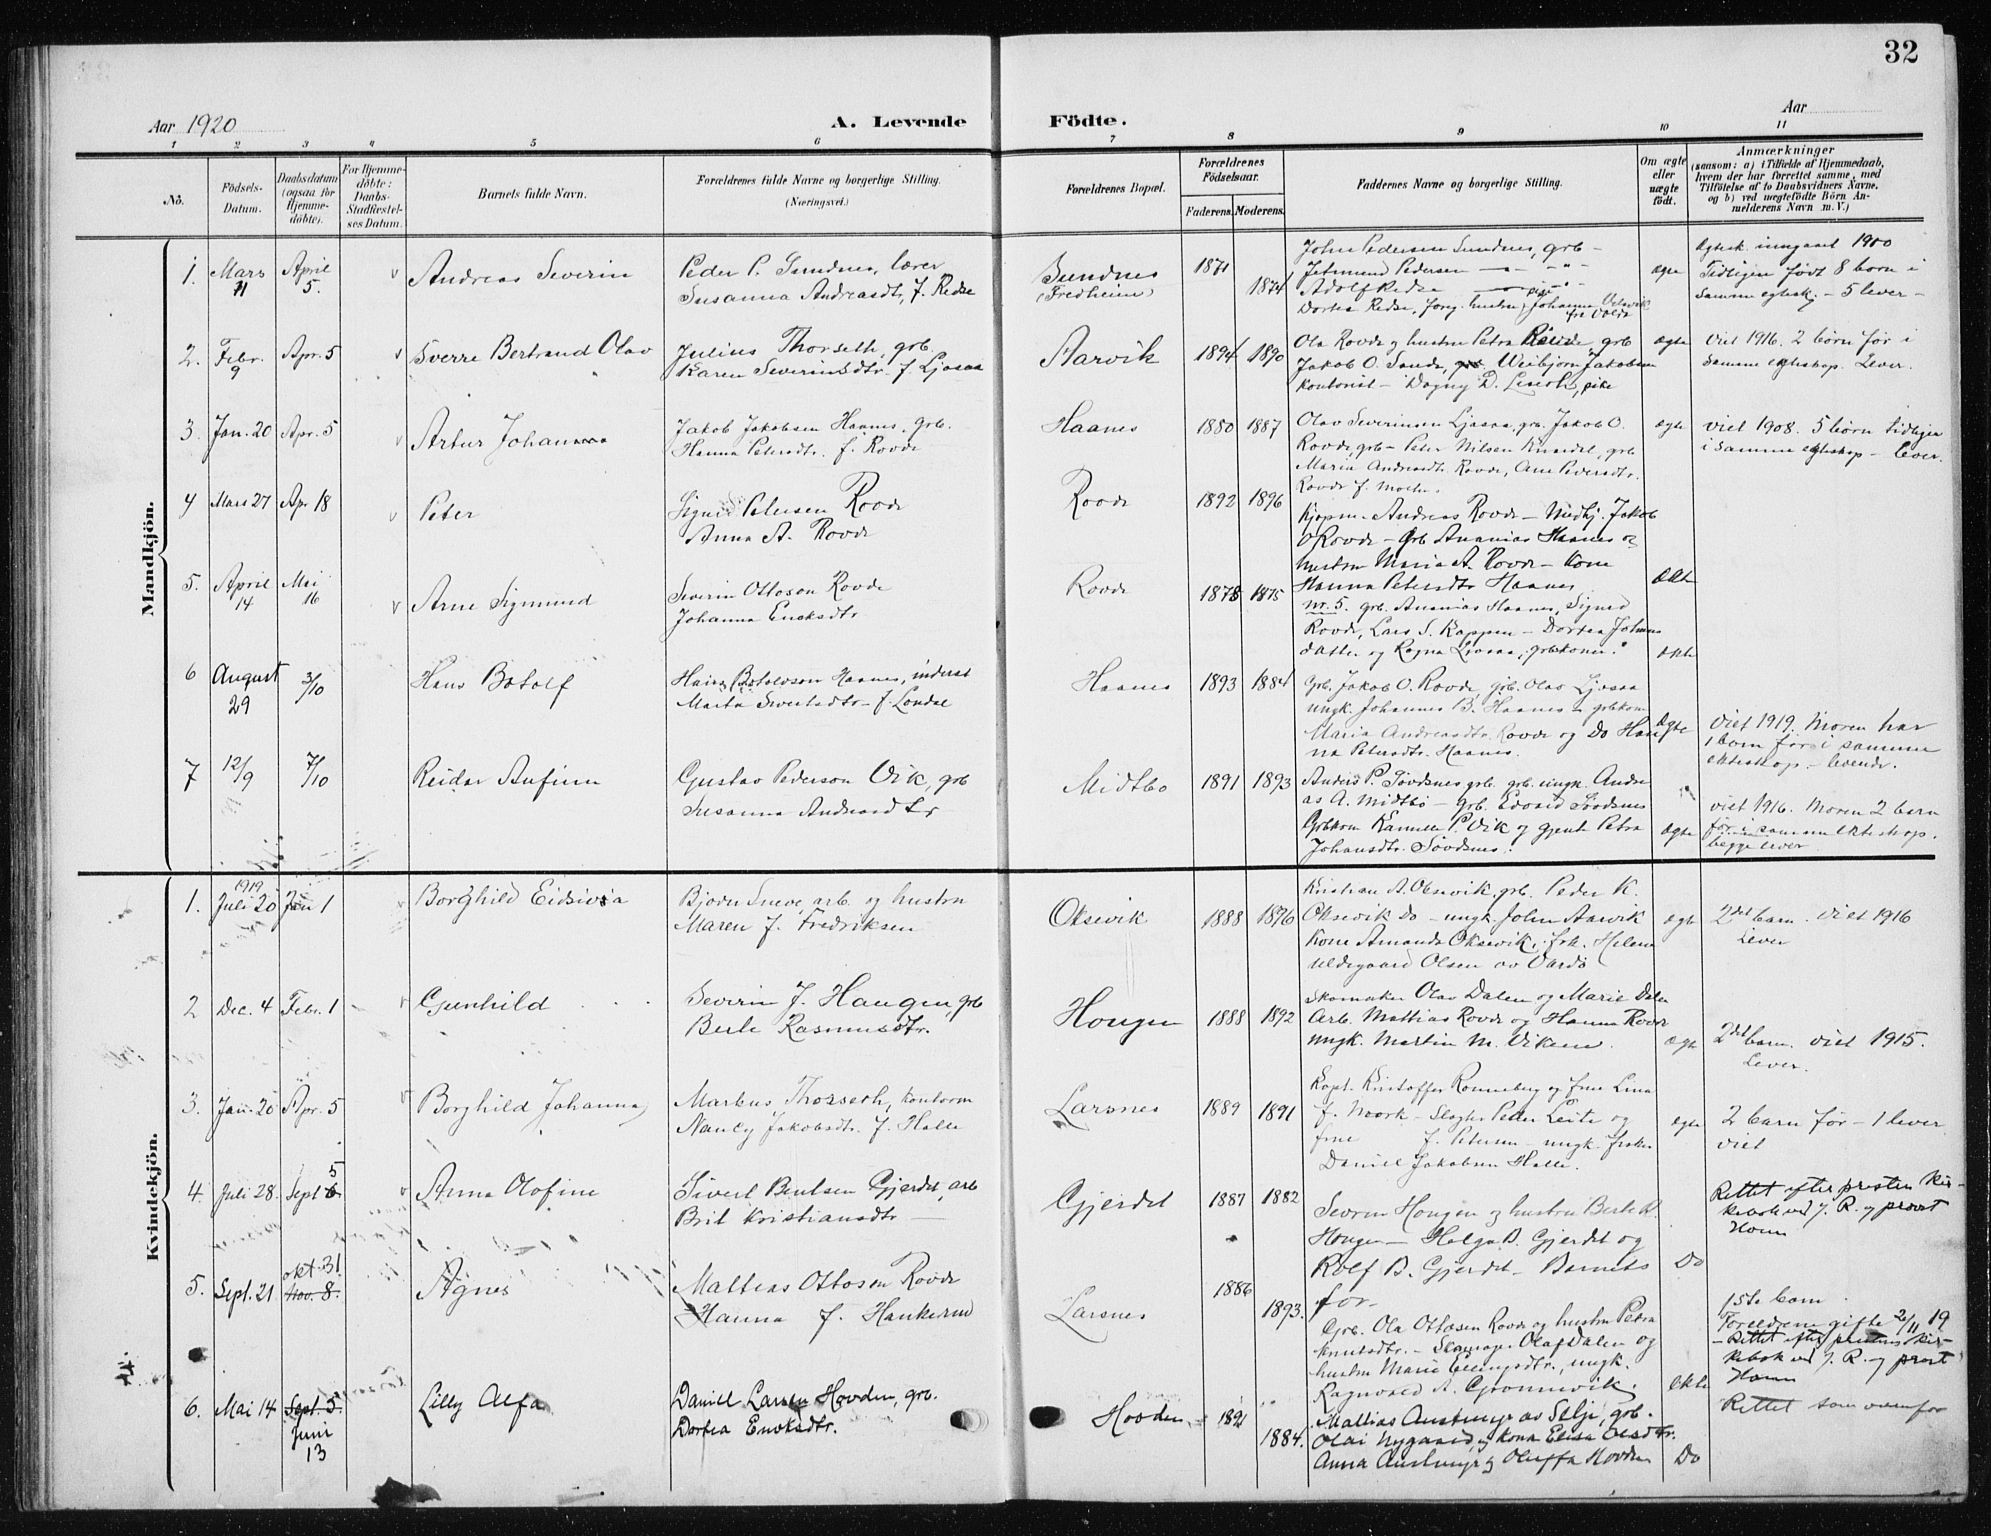 32
Aar 1920
A. Levende Födte.
Aar
1 2 3 4 5 6 7 8 9 10 11
No.
Födsels-Datum.
Daabsdatum (ogsaa for Hjemmedöbte).
For Hjemmedöbte: Daabs-Stadfæstelses Datum.
Barnets fulde Navn.
Forældrenes fulde Navne og borgerlige Stilling.
(Næringsvei.)
Forældrenes Bopæl.
Forældrenes Födselsaar.
Faderens. Moderens.
Faddernes Navne og borgerlige Stilling.
Om ægte eller uægte födt.
Anmærkninger
(saasom: a) i Tilfælde af Hjemmedaab, hvem der har forrettet samme, med Tilföielse af to Daabsvidners Navne, og b) ved uægtefödte Börn Anmelderens Navn m. V.)
Mandkjön.
1. Mars 11 April 5. v Andreas Severin
Peder P. Sundnes, lærer
Susanna Andreasdtr, f. Redse
Sundnes (Fredheim) 1871 1874
John Pedersen Sundnes, grb
Jetmund Pedersen
Adolf Redse
Dortea Redse, Johanna
fra Volda
ægte
Egtesk. inngaaet 1900
Tidligere født 8 born i
samme egtesk. – 5 lever –
2. Febr. 9 Apr. 5 v Sverre Bertrand Olav
Julius Thorseth, grb.
Karen Severinsdtr. f. Ljosaa
Aarvik 1894 1890
Ola Rovde og hustru Petra Rovde, grb
Jakob O. Sande, Weibjørn Jakobsen
kontorist – Dagny D. pike
ægte
viet 1916. 2 børn før i
samme egteskap. Lever.
3. Jan. 20 Apr. 5 v Artur Johan
Jakob Jakobsen Haanes, grb.
Hanna Petersdtr. f. Rovde
Haanes 1880 1887
Olav Severinsen Ljosaa, grb. Jakob O.
Rovde, grb – Peter Nilsen grb
Maria Andreasdtr. Rovde, Ane Pedersdtr.
Rovde f.
ægte
viet 1908. 5 børn tidliger
i samme egteskap – lever.
4 Mars 27 Apr 18 v Peter
Signed Petersen Rovde
Anna A. Rovde
Rovde 1892 1896
Kjøpm. Andreas Rovde – Jakob
O Rovde – Grb Ananias Haanes og
hustru Maria A. Rovde – Kone
Hanna Petersdtr Haanes
Ækte
5. April 14 Mai 16 v Arne Sigmund
Severin Ottoson Rovde
Johanna Enoksdtr
Rovde 1878 1875
nr. 5. grb. Ananias Haanes, Signed
Rovde, Lars S. Koppen – Dortea Johans
datter og Ragna Ljosaa, grbkoner.
ækte
6 August 29 3/10 Hans Botolf
Hans Botolvson Haanes, inderst
Marta Sivertsdtr – f. Londal
Haanes 1893 1884
Grb. Jakob O. Rovde, grb. Olav Ljosaa
ungk. Johannes B. Haanes – grbkone
Maria Andreasdtr. Rovde og Do Han
na Petersdtr. Haanes.
Ægte
viet 1919. Moren har
1 barn før i samme
ekteskap – levende.
7 12/9 7/10 Reidar Anfinn
Gustav Pederson Vik, grb
Susanna Andreasdtr
Midtbø 1891 1893
Anders P. Søvdsnes grb. grb. ungk. Andre
as A. Midtbø – grb. Edvard Søvdsnes
Grbkone P. Vik og gjente Petra
Johansdtr. Søvdsnes.
ægte
viet 1916. Moren 2 barn
før i samme ekteskap.
begge lever
Kvindekjön.
1. 1919 Juli 20 Jan 1 Borghild Eidsivia
Bjorn Sneve, arb. og hustru
Maren f. Fredriksen
Oksevik 1888 1896
Kristian A. Oksevik, grb. Peder K.
Oksevik Do – ungk. John Aarvik
Kone Amanda Oksevik, frk. Helene
Uldegaard Olsen av Vardø
ægte
2det barn. Viet 1916
Lever
2 Dec. 4 Febr. 1 Gunhild
Severin J. Haugen, grb
Berte Rasmusdtr.
Hougen 1888 1892
Skomaker Olav Dalen og Marie Dalen
Arb. Mattias Rovde og Hanna Rovde
ungk. Martin M. Viken.
ægte
2det barn. viet 1915.
Lever.
3. Jan. 20 Apr. 5 Borghild Johanna
Markus Thorseth, kontorm
Nancy Jakobsdtr. f. Halle
Larsnes 1889 1891
Kapt. Kristoffer Ronneberg og frue Lina
f. Noork – Slagter Peder Leite og
frue f. Petersen – ungk. fisker
Daniel Jakobsen Halle.
ægte
2 barn før – 1 lever
viet
4. Juli 28. Sept 6 5 Anna Olofine
Sivert Bentsen Gjerdet, arb
Brit Kristiansdtr –
Gjerdet 1887 1882
Severin Hougen og hustru Berte R.
Hougen – Helga B. Gjerdet og
Rolf B. Gjerdet – Barnets
far.
Do
Rettet efter presten kir-
kebok ved J. R. og prost
Honn
5. Sept. 21 okt. 31 Nov. 8. Agnes
Mattias Ottosen Rovde
Hanna f. Hankerud
Larsnes 1886 1893.
Grb. Ola Ottosen Rovde og hustru Petra
Knutsdtr. – Olaf Dalen og
hustru Marie Ellingsdtr., ungk.
Ragnvald A. Grønnevik.
Ekte
1ste barn.
Foreldrene gifte 2/11 19
– Rettet efter prestens kir-
kebok ved J. R. og prost
Honn
6. Mai 14 Sept. 5. Juni 13 Lilly Alfa
Daniel Larsen Hovden, grb.
Dortea Enoksdtr.
Hovden 1891 1884.
Mattias av Selje, grb.
Olai Nygaard, og kona Elisa Olsdtr.
Anna og Oluffa Hovden
Do
Rettet som ovenfor